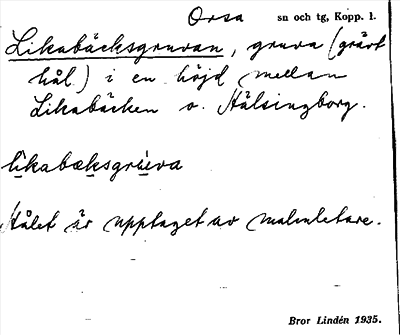 Orsa sn och tg, Kopp. l.
Likabäcksgruvan, gruva (grävt
hål) i en höjd mellan
Likabäcken o. Hälsingborg.
likabæksgruva
Hålet är upptaget av malmletare.
Bror Lindén 1935.